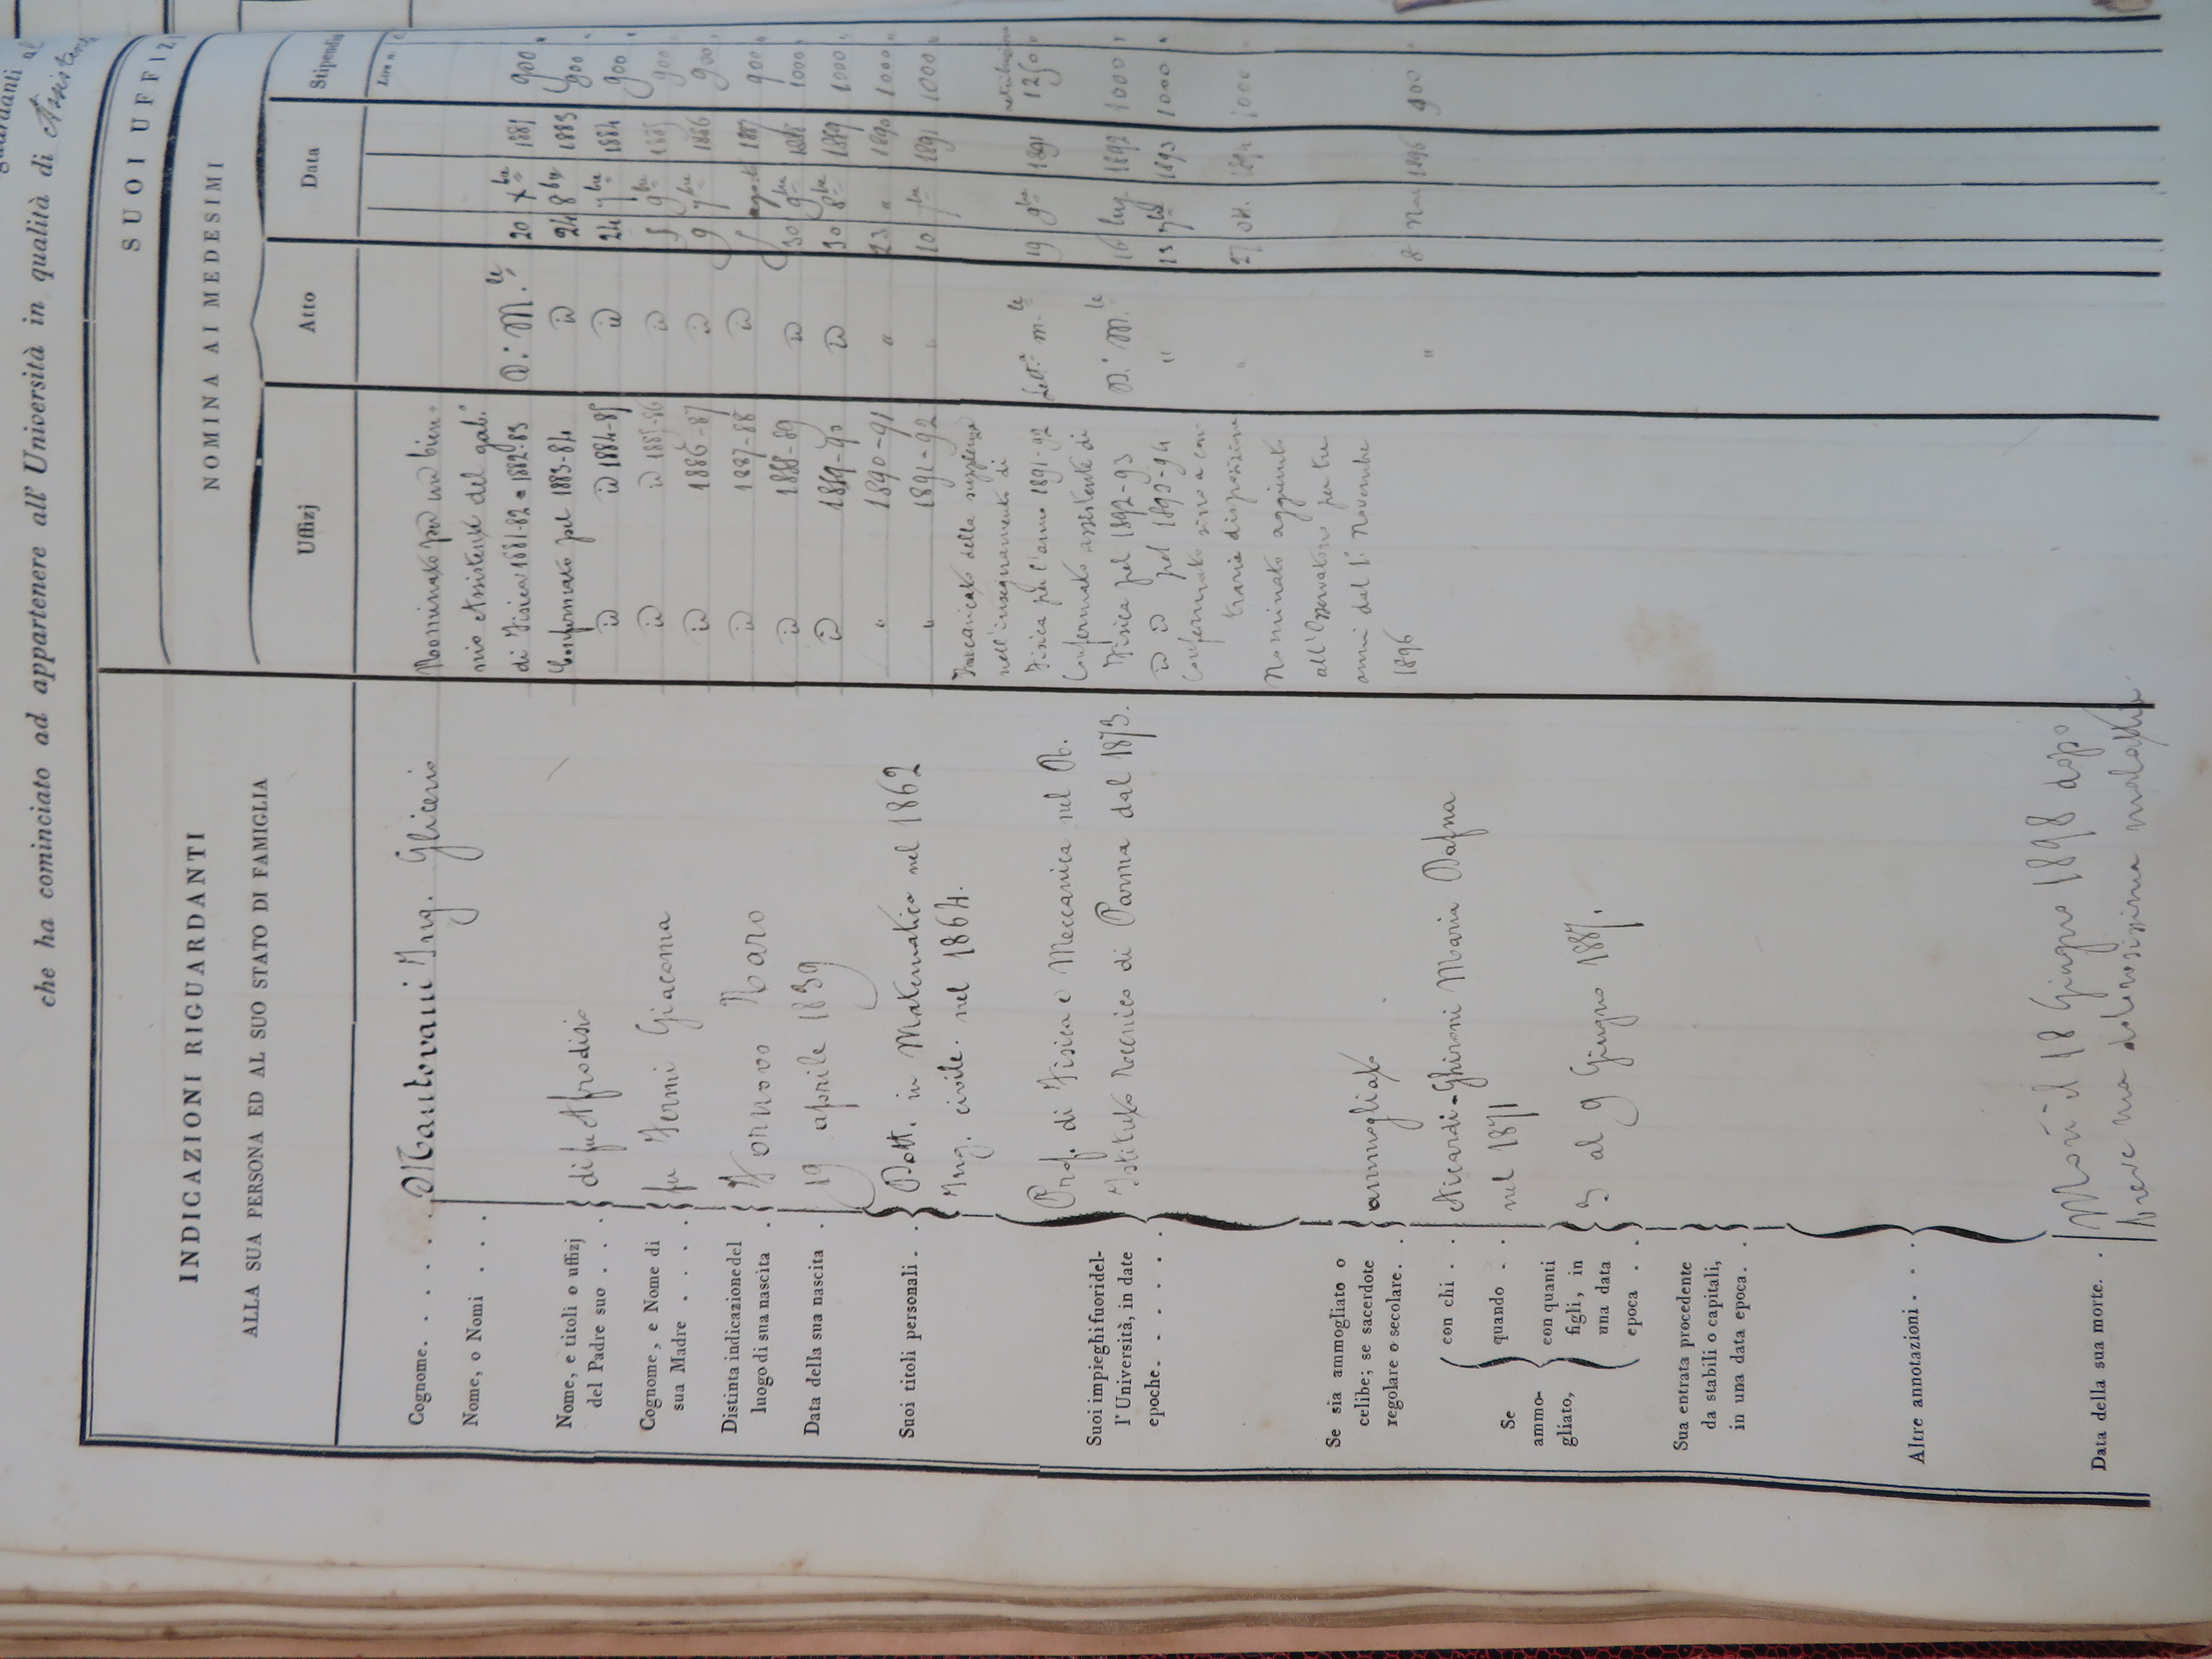 che ha cominciato ad appartenere all' Università in qualità di Assistente
INDICAZIONI RIGUARDANTI
ALLA SUA PERSONA ED AL SUO STATO DI FAMIGLIA
Cognome. . . . . Mantovani Ing. Glicerio
Nome, o Nomi . . .
Nome, e titoli o uffizj
del Padre suo . . di fu Afrodisio
Cognome, e Nome di
sua Madre . . . . fu Fermi Giacoma
Distinta indicazione del
luogo di sua nascita . Fornovo Taro
Data della sua nascita . 19 aprile 1839
Suoi titoli personali . . Dott. in Matematica nel 1862
Ing. civile. nel 1864.
Suoi impieghi fuori del-
l' Università, in date
epoche. . . . . .
Prof. di Fisica e Meccanica nel R.
Istituto Tecnico di Parma dal 1873.
Se sia ammogliato o
celibe; se sacerdote
regolare o secolare. . ammogliato
Se
ammo-
gliato,
con chi . . Aicardi-Ghironi Maria Dafna
quando . . nel 1871
con quanti
figli, in
una data
epoca . . 3 al 9 Giugno 1887.
Sua entrata procedente
da stabili o capitali,
in una data epoca. .
Altre annotazioni . . .
Data della sua morte. . Morì il 18 Giugno 1898 dopo
breve ma dolorosissima malattia.
SUOI UFFIZ
NOMINA AI MEDESIMI
Uffizj Atto Data Stipendio
Lire n. c
Nominato per un bien-
nio Assistente del gab.º
di Fisica 1881-82 e 1882-83 D.º M.le 20 Xbre 1881 900 "
Confermato pel 1883-84 id 24 8bre 1883 900 "
id id 1884-85 id 24 7bre 1884 900 "
id id 1885-86 id 5 9bre 1885 900 "
id 1886-87 id 9 7bre 1886 900 "
id 1887-88 id 5 agosto 1887 900 "
id 1888-89 id 30 9bre 1888 1000 "
id 1889-90 id 30 8bre 1889 1000 "
" 1890-91 " 23 " 1890 1000 "
" 1891-92 " 10 1891 1000 "
Incaricato della supplenza
nell'insegnamento di retribuzione
Fisica per l'anno 1891-92 Lett.ª m.le 19 9bre 1891 1250 "
Confermato assistente di
Fisica pel 1892-93 D.º M.le 16 lug. 1892 1000 "
id id pel 1893-94 " 13 7bre 1893 1000 "
Confermato sino a con-
traria disposizione " 27 ott. 1894 1000 "
Nominato aggiunto
all'Osservatorio per tre
anni dal 1º Novembre
1896 " 8 Nov 1896 900 "